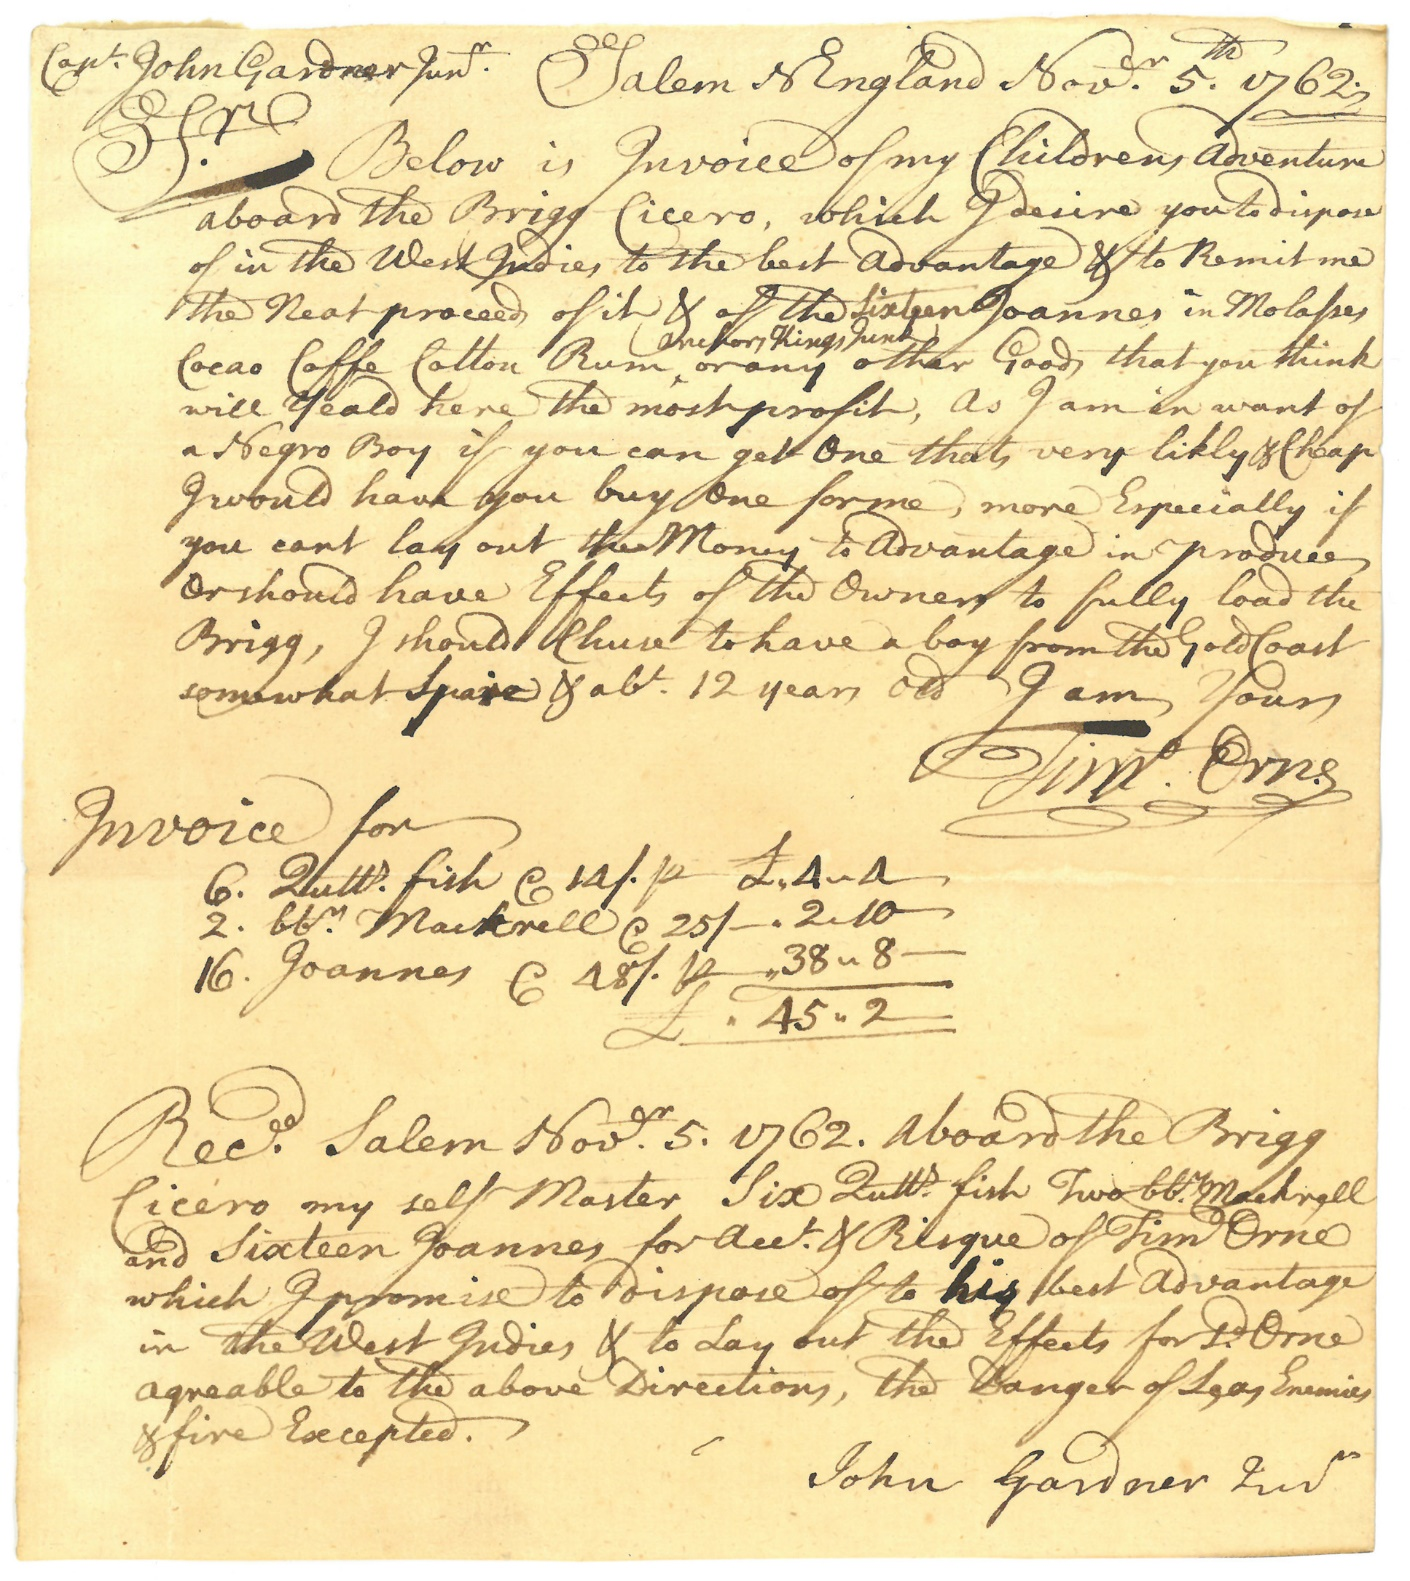 Capt. John Gardner Junr.
Salem N England Novr. 5th. 1762.
Sr.
Below is Invoice of my Childrens Adventure
aboard the Brigg Cicero, which I desire you to dispose
of in the West Indies to the best Advantage & to Remit me
the Neat proceeds of it & of the Sixteen Joannes in Molasses
anchors Kings Junk
Cocao Coffe Cotton Rum, or any other Goods that you think
will Yeald here the most profit, As I am in want of
a Negro Boy if you can get One thats very likly & Cheap
I would have you buy One for me, more Especially if
you cant lay out the Money to Advantage in produce
Or should have Effects of the Owners to fully load the
Brigg, I should Chuse to have a boy from the Gold Coast
somewhat Spare & abt. 12 years Old I am Yours
Timo. Orne
Invoice for
6. Quttls. fish @ 14/. p £ „ 4 „ 4
2. bbls. Mackrell @ 25/ „ 2 „ 10
16. Joannes @ 48/. p „ 38 „ 8
£ „ 45 „ 2
Recd. Salem Novr. 5. 1762. Aboard the Brigg
Cicero my self Master Six Quttls. fish Two bbls. Mackrell
and Sixteen Joannes for Acct. & Risque of Timo Orne
which I promise to dispose of to his best Advantage
in the West Indies & to Lay out the Effects for sd. Orne
agreable to the above Directions, the Danger of Seas Enemies
& fire Excepted.
John Gardner Junr